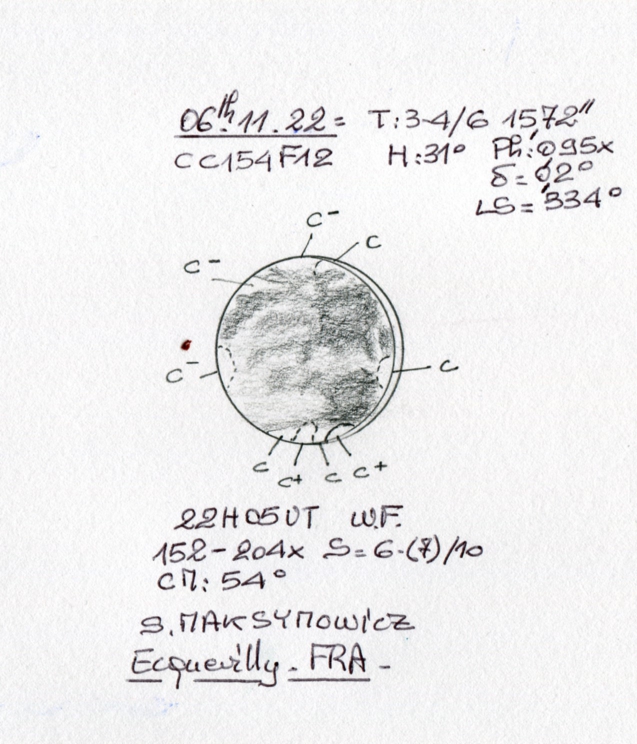 06th.11.22= T:3-4/6 15"72
CC154F12 H:31° Ph:0,95x
δ=02°
LS=334°
C- C
C-
C- C
C C+ C C+
22H05UT W.F.
152-204x S=6-(7)/10
CM: 54°
S.MAKSYMOWICZ
Ecquevilly. FRA-